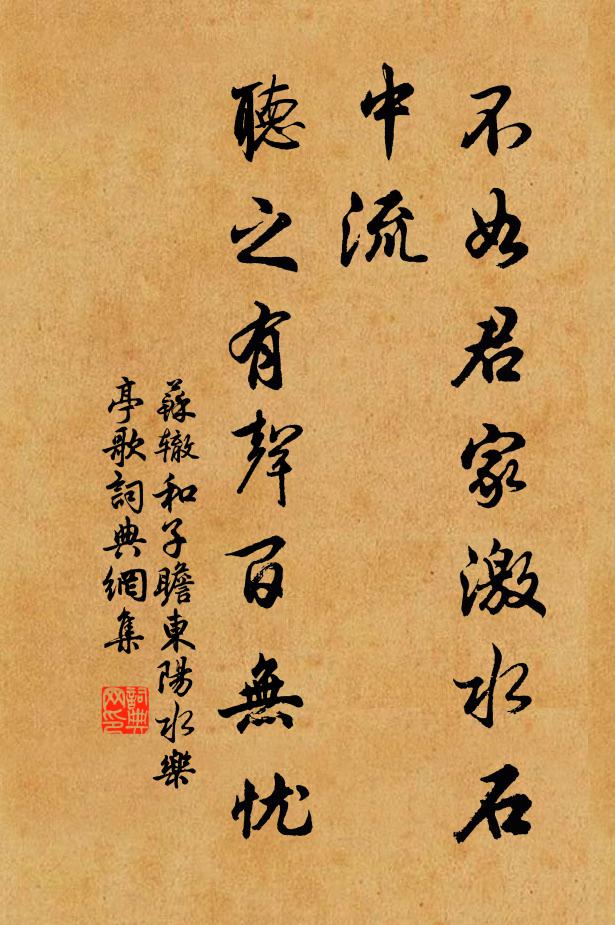 不如君家激水石
中流
聽之有聲百無忧
蘇辙和子瞻東陽水樂
亭歌詞典網集
詞典
网印